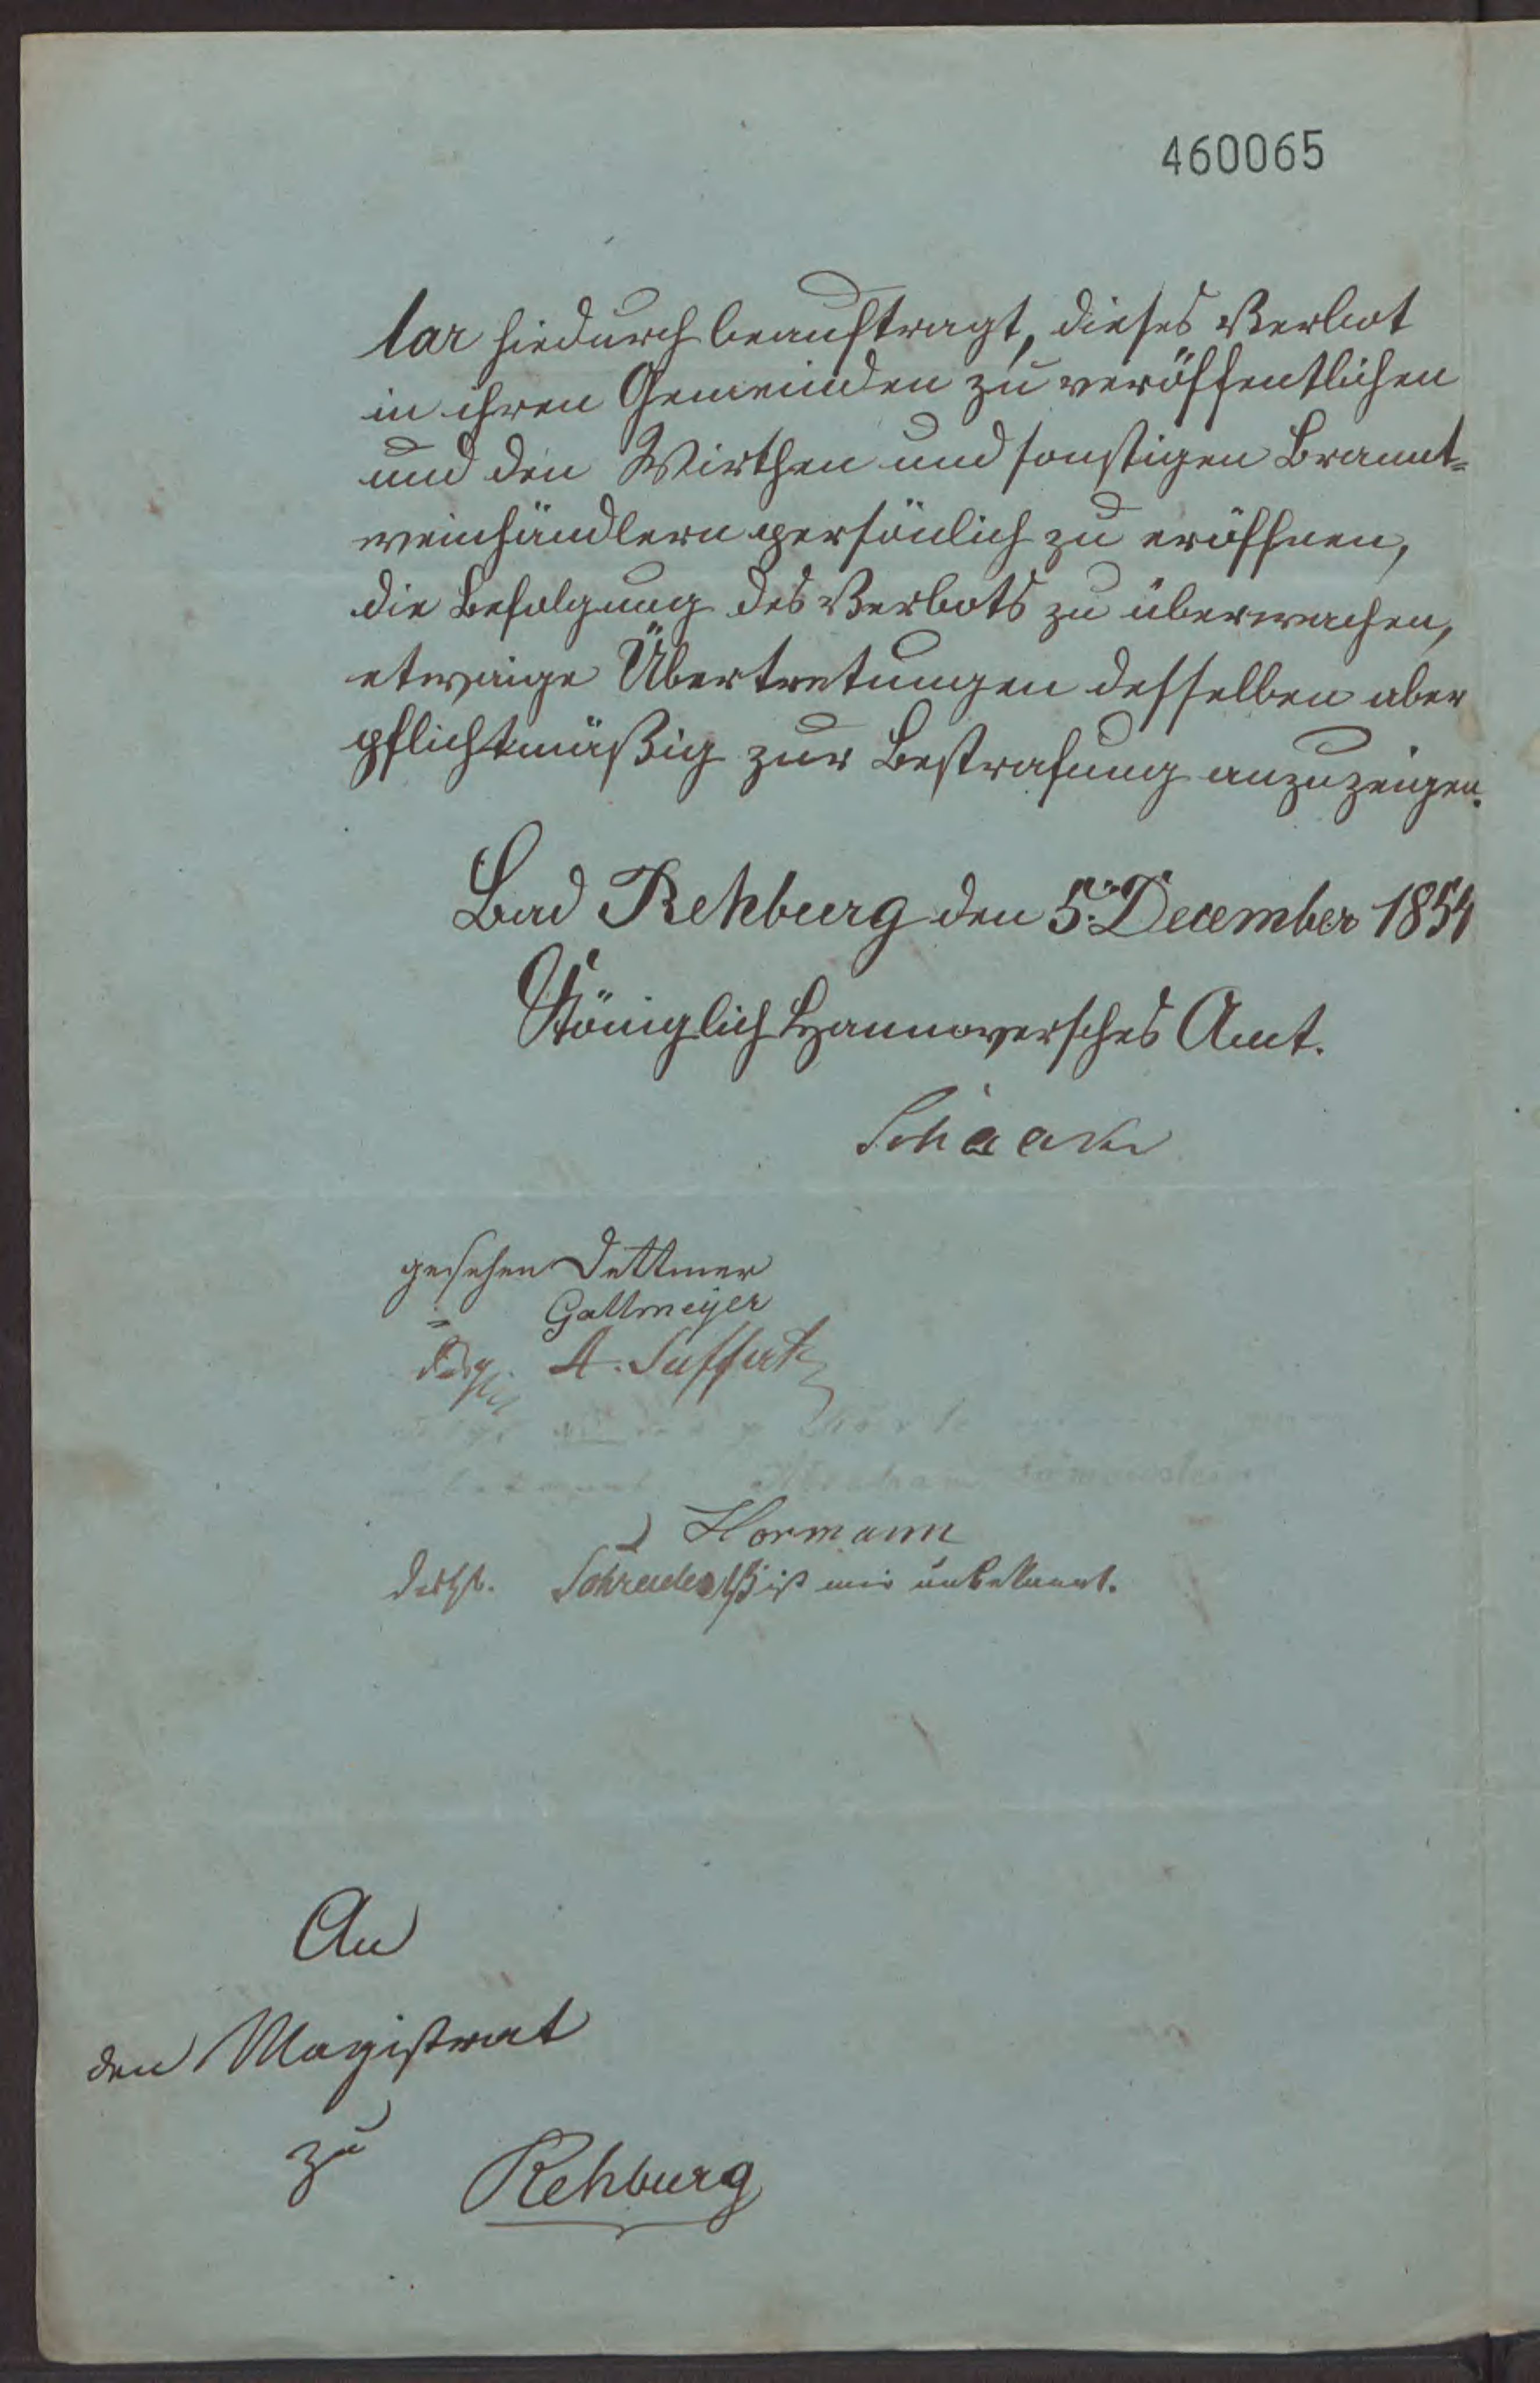 460065
lar hiedurch beauftragt, dieses Verbot
in ihren Gemeinden zu veröffentlichen
und den Wirthen und sonstigen Brannt=
weinhändlern persönlich zu eröffnen,
die Befolgung des Verbots zu überwachen,
etwaige Übertretungen desselben aber
pflichtmäßig zur Bestrafung anzuzeigen.
Bad Rehburg den 5. December 1854
Königlich Hannoversches Amt.
Schaack
gesehen Dettmer
" Gallmeyer
A. Suffert
Hormann
ist mir unbekannt.
An
den Magistrat
zu Rehburg